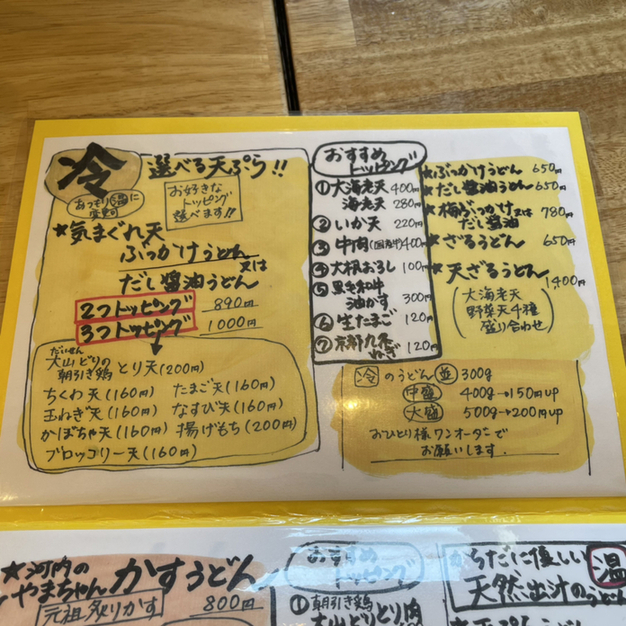 冷
選べる天ぷら!!
あつもり(温)に
変更可
お好きな
トッピング
選べます!!
★気まぐれ天
ぶっかけうどん
又は
だし醤油うどん
2つトッピング 890円
3つトッピング 1000円
だいせん
大山どりの
朝引き鶏 とり天(200円)
ちくわ天(160円) たまご天(160円)
玉ねぎ天(160円) なすび天(160円)
かぼちゃ天(160円) 揚げもち(200円)
ブロッコリー天(160円)
おすすめ
トッピング
①大海老天 400円
海老天 280円
②いか天 220円
③牛肉(国産牛)400円
④大根おろし 100円
⑤黒毛和牛
油かす 300円
⑥生たまご 120円
⑦京都九条
ねぎ 120円
★ぶっかけうどん 650円
★だし醤油うどん 650円
★梅ぶっかけ又は
だし醤油 780円
★ざるうどん 650円
★天ざるうどん
1400円
(大海老天
野菜天4種
盛り合わせ)
冷のうどん 並 300g
中盛 400g→150円up
大盛 500g→200円up
おひとり様ワンオーダーで
お願いします.
★河内の
やまちゃん かすうどん
元祖炙りかす 800円
おすすめ
トッピング
①朝引き鶏
大山どりとり肉
からだに優しい
天然出汁のうどん
温